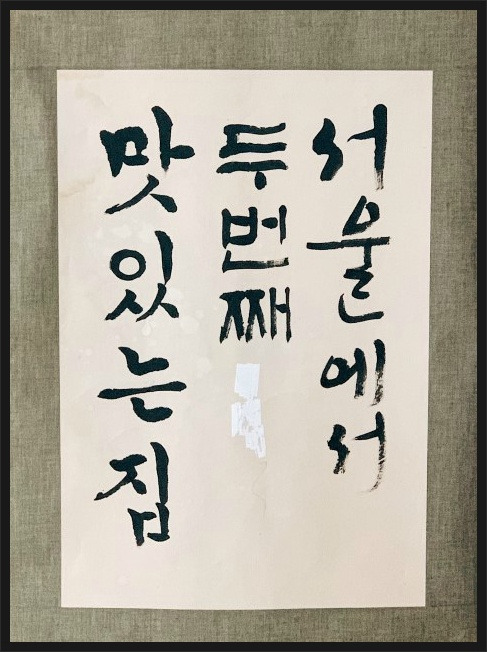 서울에서
두번째
맛있는집